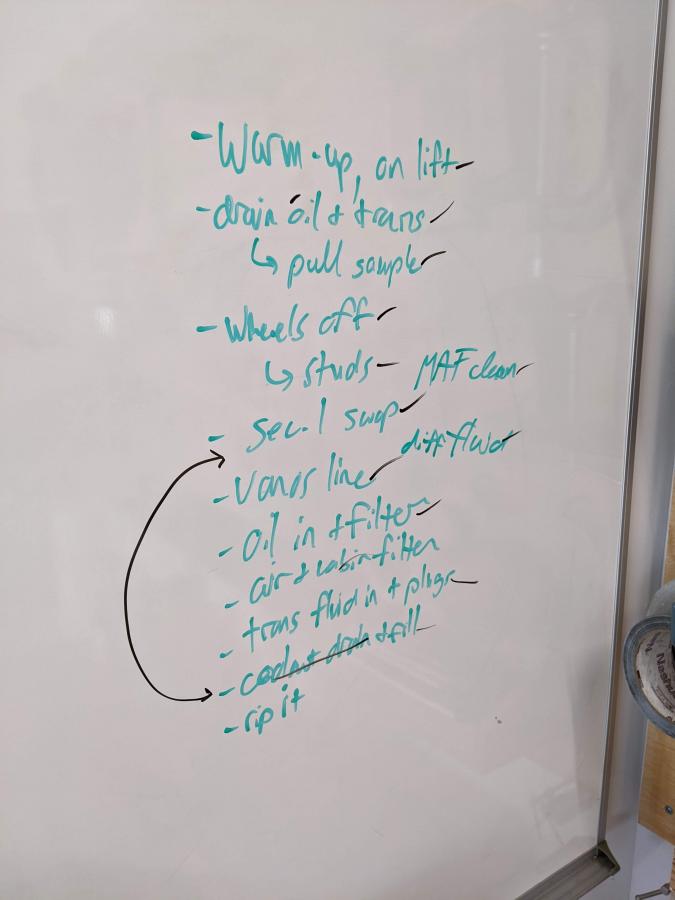 - Warm-up, on lift
- drain oil + trans
↳ pull sample
- Wheels off
↳ studs
MAF clean
- sec. 1 swap
diff fluid
- Vanos line
- Oil in + filter
- air + cabin filter
- trans fluid in + plugs
- coolant drain + fill
- rip it